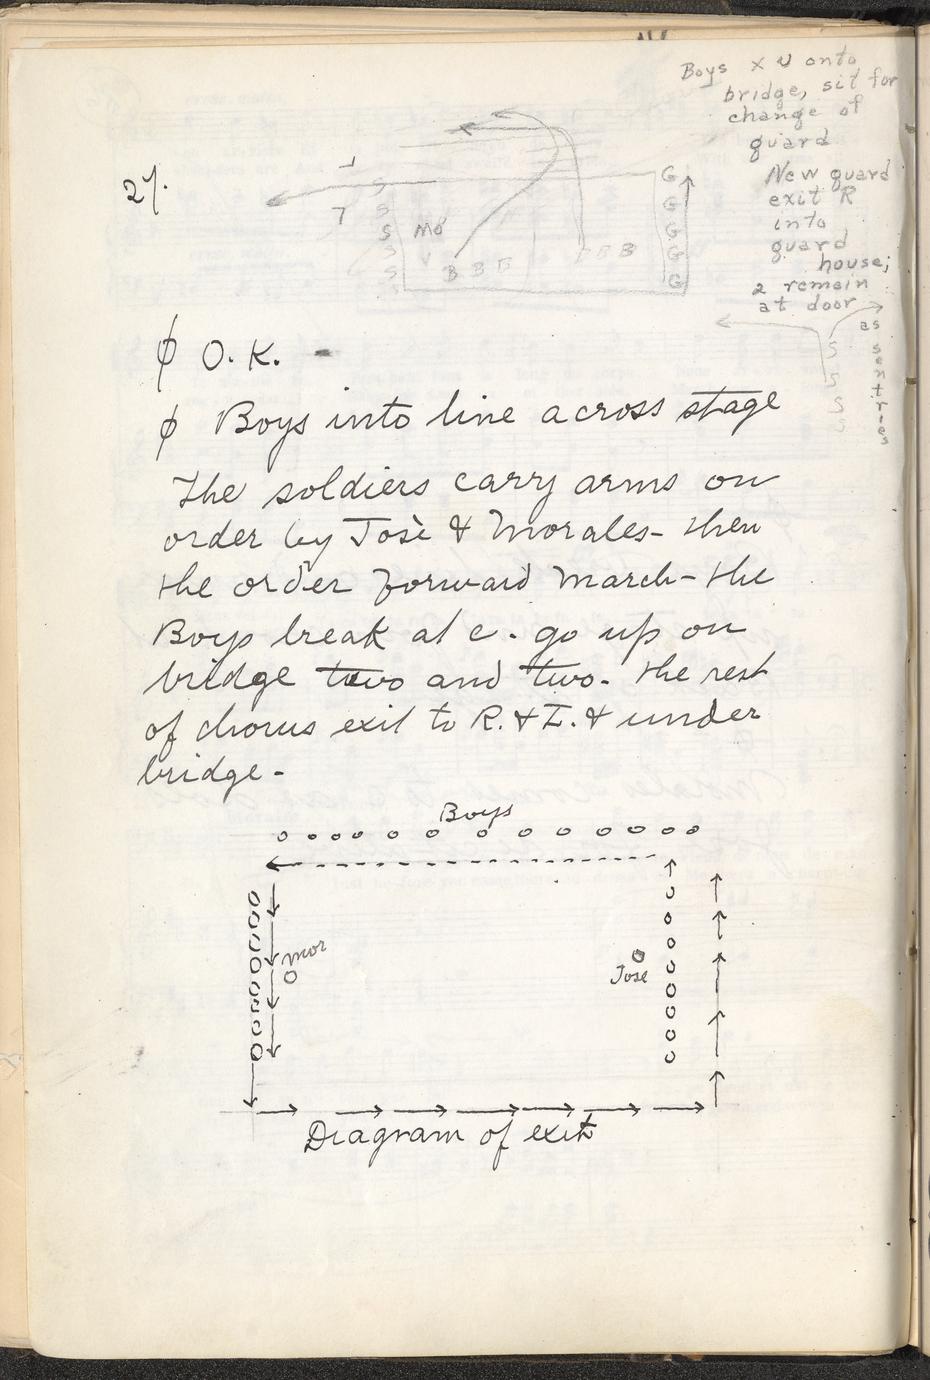 Boys x U onto
bridge, sit for
change of
guard
New guard
exit R
into
guard
house;
2 remain
at door
as
sentries
27.
T
S
S
S
S
S
Mo
B B B
B B B
G
G
G
G
G
S
S
S
S
ϕ O.K. -
ϕ Boys into line across stage
The soldiers carry arms on
order by Josè & Morales - then
the order forward March - the
Boys break at c. go up on
bridge two and two. the rest
of chorus exit to R. & L. & under
bridge -
Boys
Mor
Jose
Diagram of exit